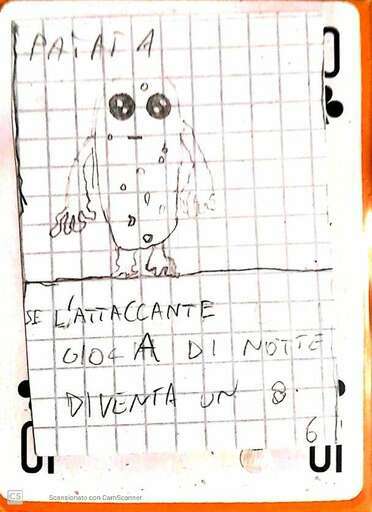 PATATA
SE L'ATTACCANTE
GIOCA DI NOTTE
DIVENTA UN 8.
6
10
CS Scansionato con CamScanner